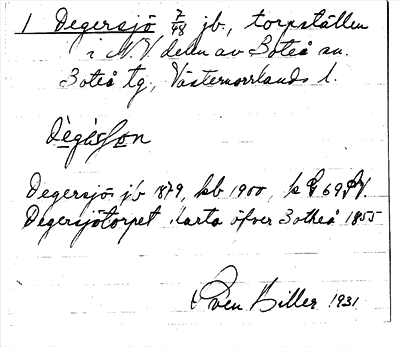 1 Degersjö 7/48 jb., torpställen
i N.V. delen av Boteå sn.
Boteå tg., Västernorrlands l.
Degersjö jb 1879, kb 1900, k
Degersjötorpet karta öfver Botheå 1855
Sven Biller 1931